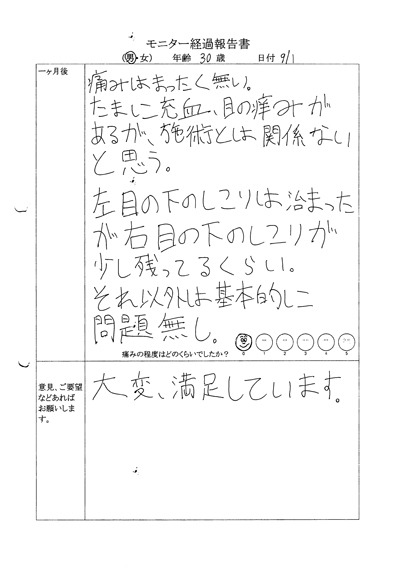 モニター経過報告書
(男・女) 年齢 30 歳 日付 9/1
一ヶ月後
痛みはまったく無い。
たまに充血、目の痒みが
あるが、施術とは関係ない
と思う。
左目の下のしこりは治まった
が右目の下のしこりが
少し残ってるくらい。
それ以外は基本的に
問題無し。
痛みの程度はどのくらいでしたか?
0 1 2 3 4 5
意見、ご要望
などあれば
お願いしま
す。
大変、満足しています。